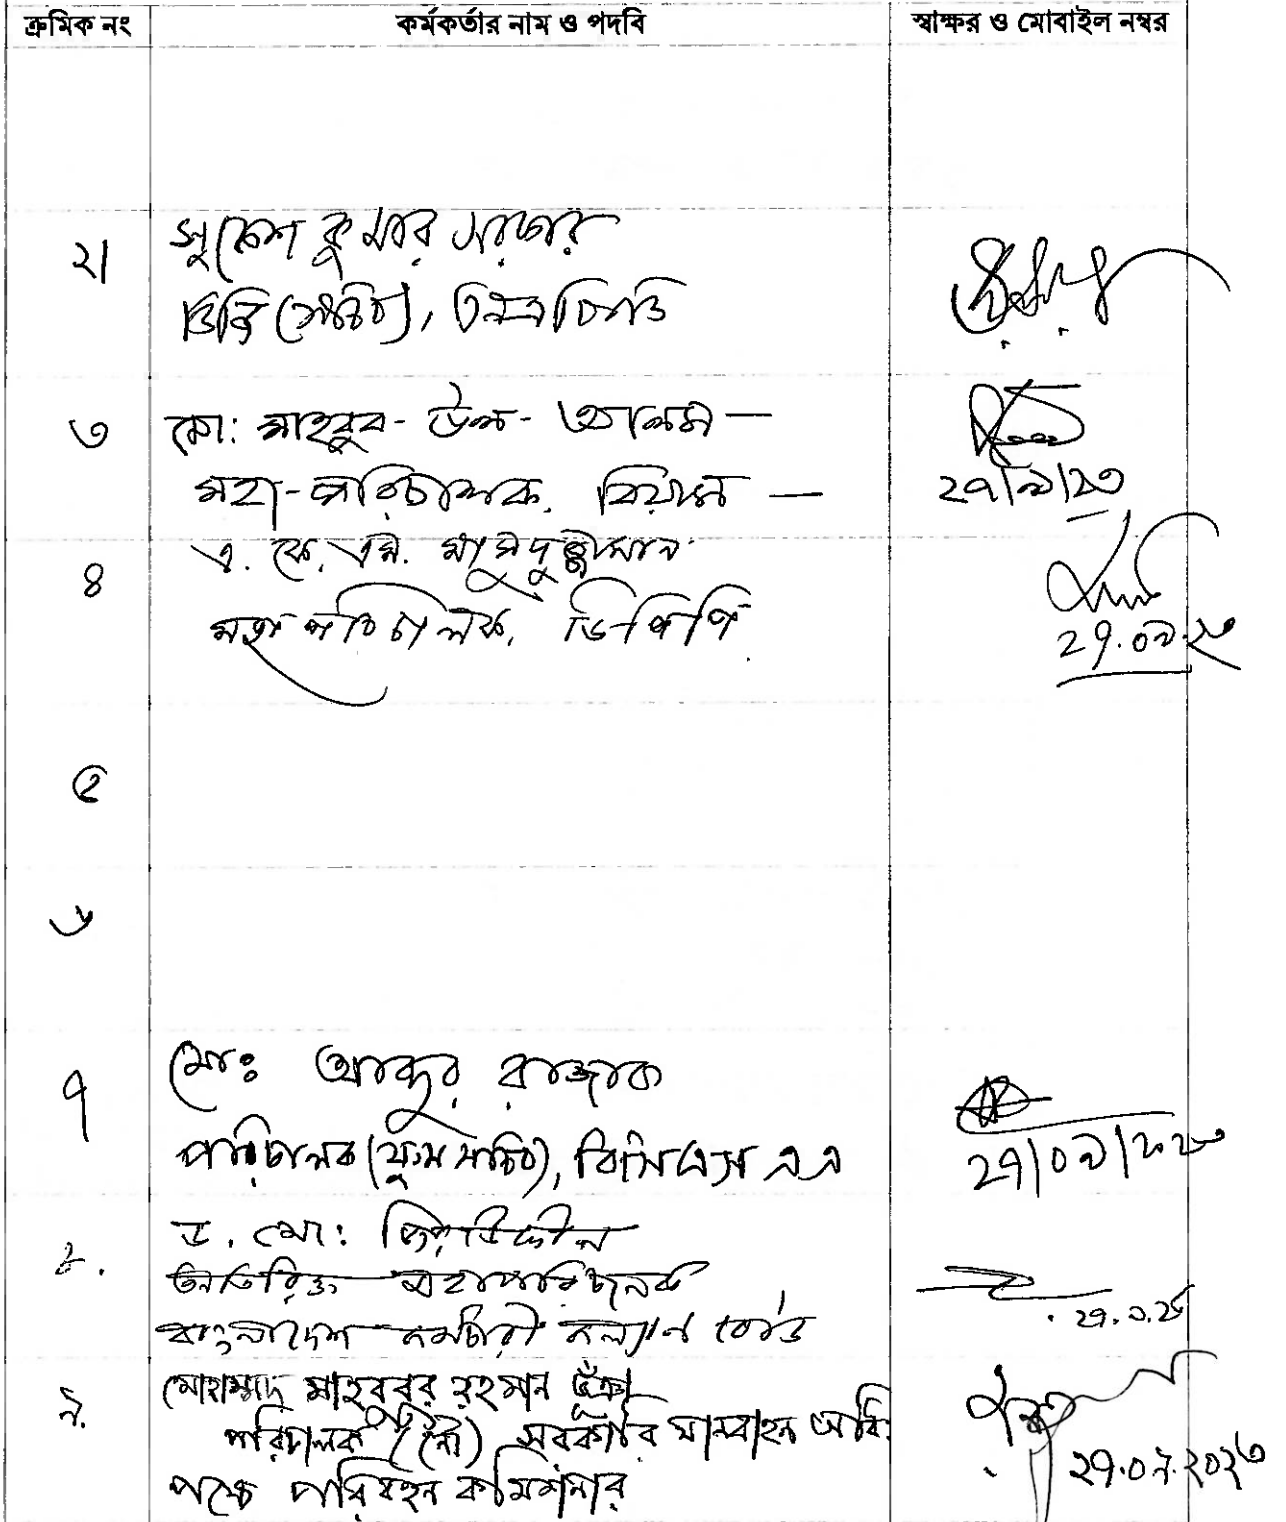 ক্রমিক নং কর্মকর্তার নাম ও পদবি স্বাক্ষর ও মোবাইল নম্বর
২। কুমার সরকার
(সচিব),
৩ মো: মাহবুব-উল-আলম —
মহা-পরিচালক, বিয়াম —
২৭/৯/২৩
৪ এ. কে. এম. মাসুদুজ্জামান
মহাপরিচালক, ডিপিপি
২৭.০৯.২৩
৫
৬
৭ মোঃ আব্দুর রাজ্জাক
পরিচালক (যুগ্মসচিব), বিসিএস
২৭/০৯/২০২৩
৮. ড. মো:
অতিরিক্ত মহাপরিচালক
বাংলাদেশ কর্মচারী কল্যাণ বোর্ড
২৭.৯.২৩
৯. মোহাম্মদ মাহবুবুর রহমান ভূঁঞা
পরিচালক (নৌ) সরকারি যানবাহন অধি:
পক্ষে পরিবহন কমিশনার
২৭.০৯.২০২৩